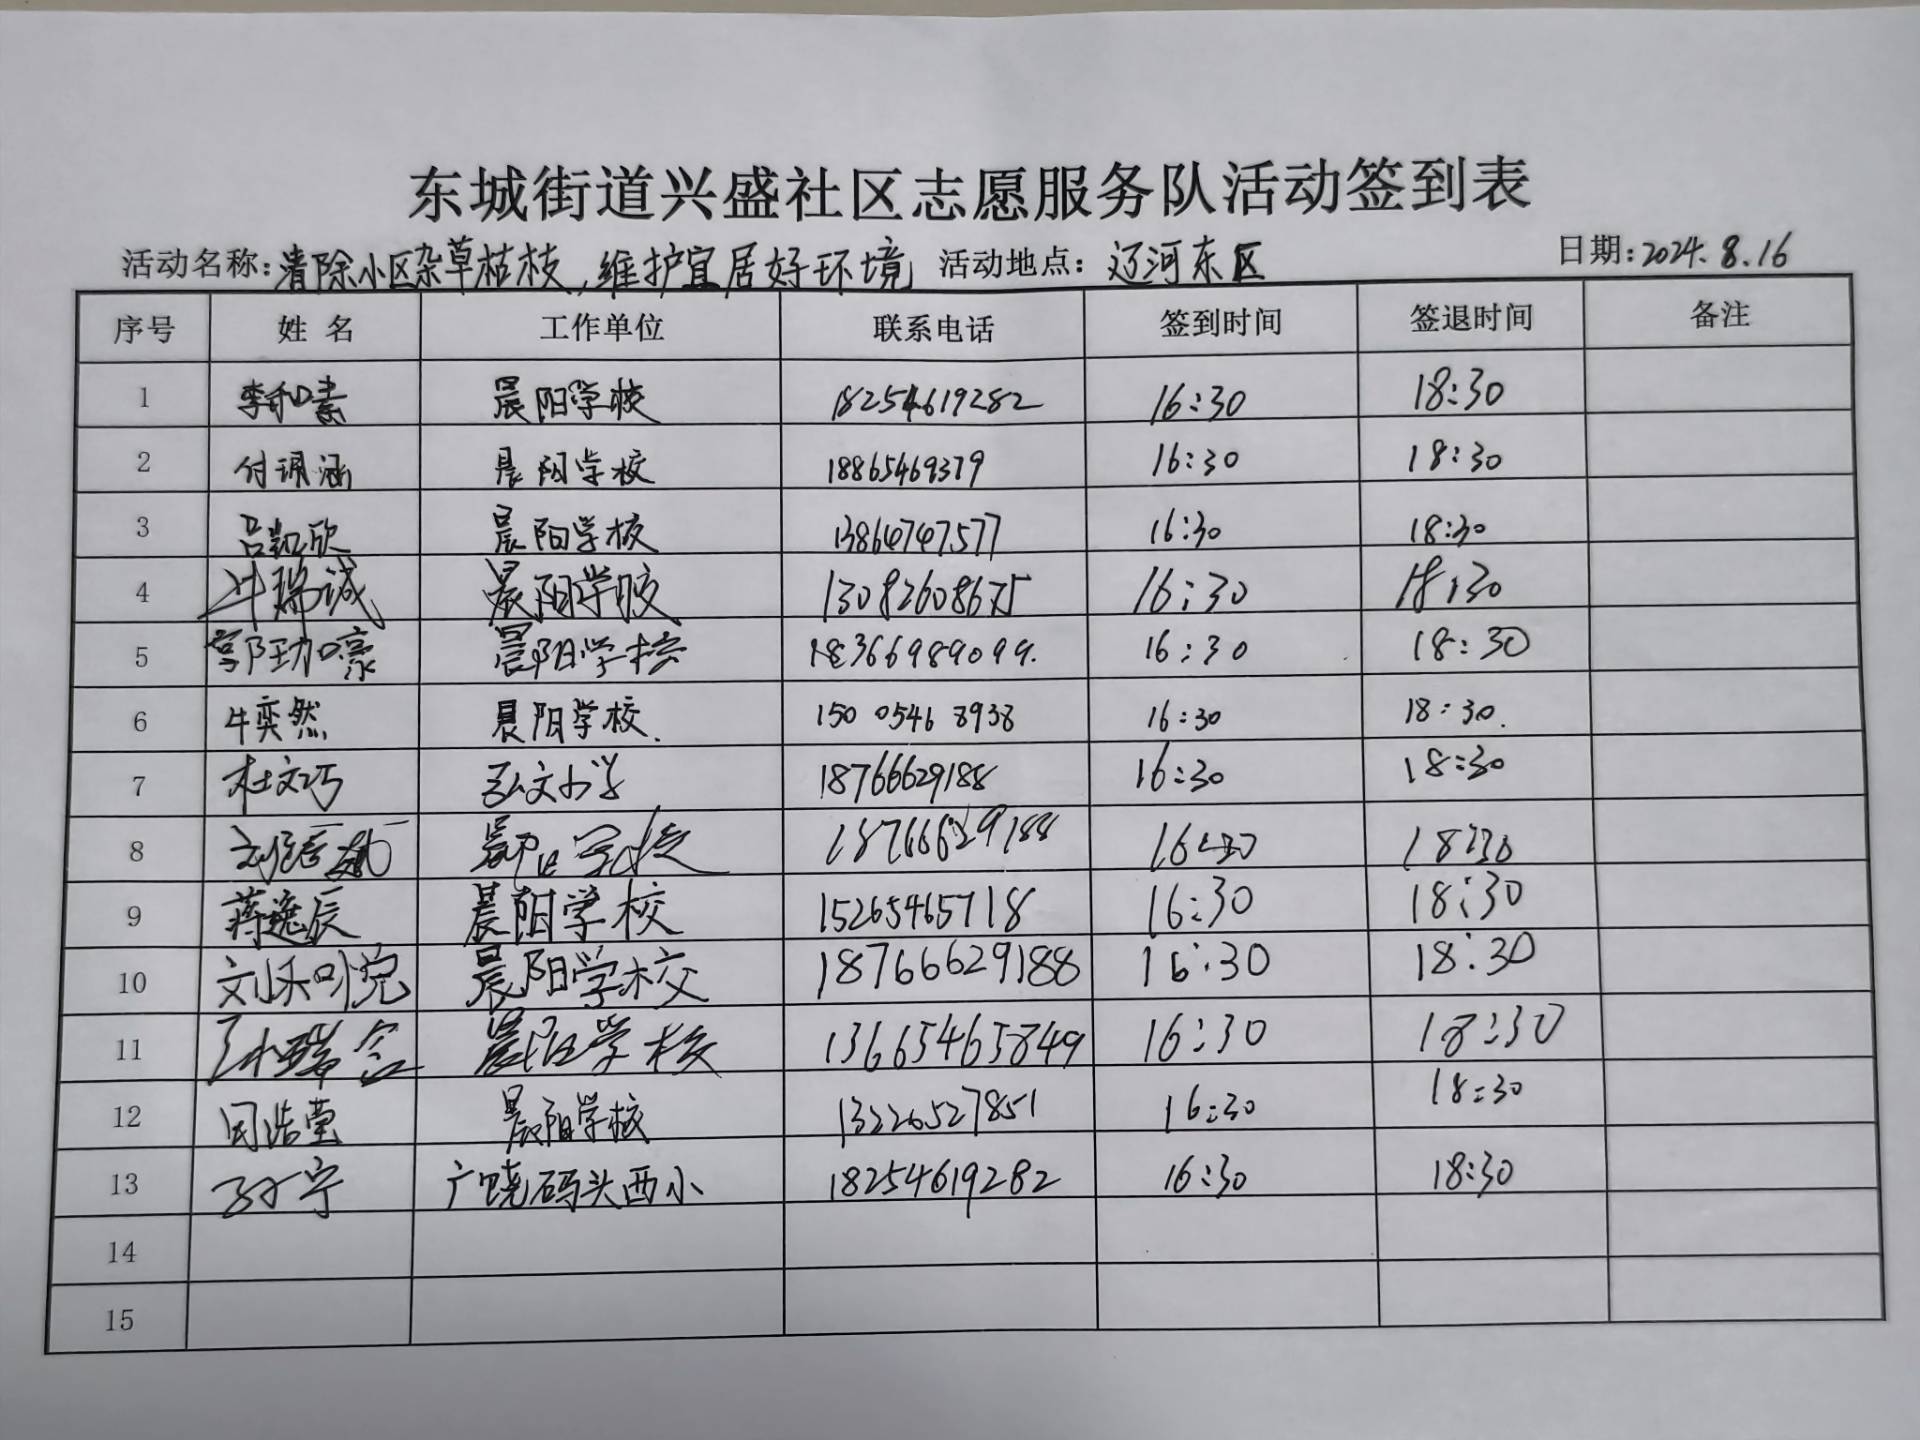 东城街道兴盛社区志愿服务队活动签到表
活动名称:清除小区杂草枯枝,维护宜居好环境 活动地点:辽河东区 日期:2024.8.16
序号 姓名 工作单位 联系电话 签到时间 签退时间 备注
1 李和素 晨阳学校 18254619282 16:30 18:30
2 付 涵 晨阳学校 18865469379 16:30 18:30
3 吕凯欣 晨阳学校 13864747577 16:30 18:30
4 瑞诚 晨阳学校 13082608675 16:30 18:30
5 晨阳学校 18366989099. 16:30 18:30
6 牛奕然 晨阳学校. 150 0546 8938 16:30 18:30.
7 杜文巧 弘文小学 18766629188 16:30 18:30
8 晨阳学校 18766629188 16:30 18:30
9 蒋逸辰 晨阳学校 15265465718 16:30 18:30
10 刘 晨阳学校 18766629188 16:30 18:30
11 晨阳学校 13665465849 16:30 18:30
12 浩莹 晨阳学校 13226527851 16:30 18:30
13 孙宁 广饶码头西小 18254619282 16:30 18:30
14
15